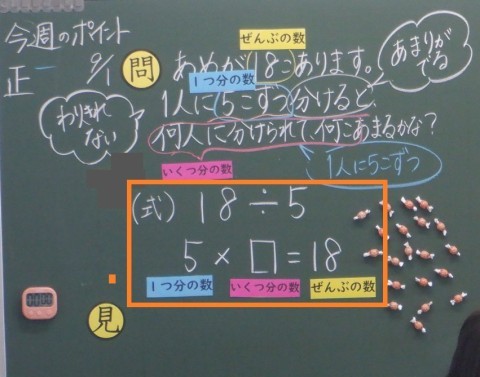 今週のポイント
ぜんぶの数
正一 9/1 問 あめが18こあります。
あまりがでる
1つ分の数
1人に5こずつ分けると、
わりきれない
何人に分けられて、何こあまるかな?
いくつ分の数
1人に5こずつ
(式) 18÷5
5×□=18
1つ分の数 いくつ分の数 ぜんぶの数
見